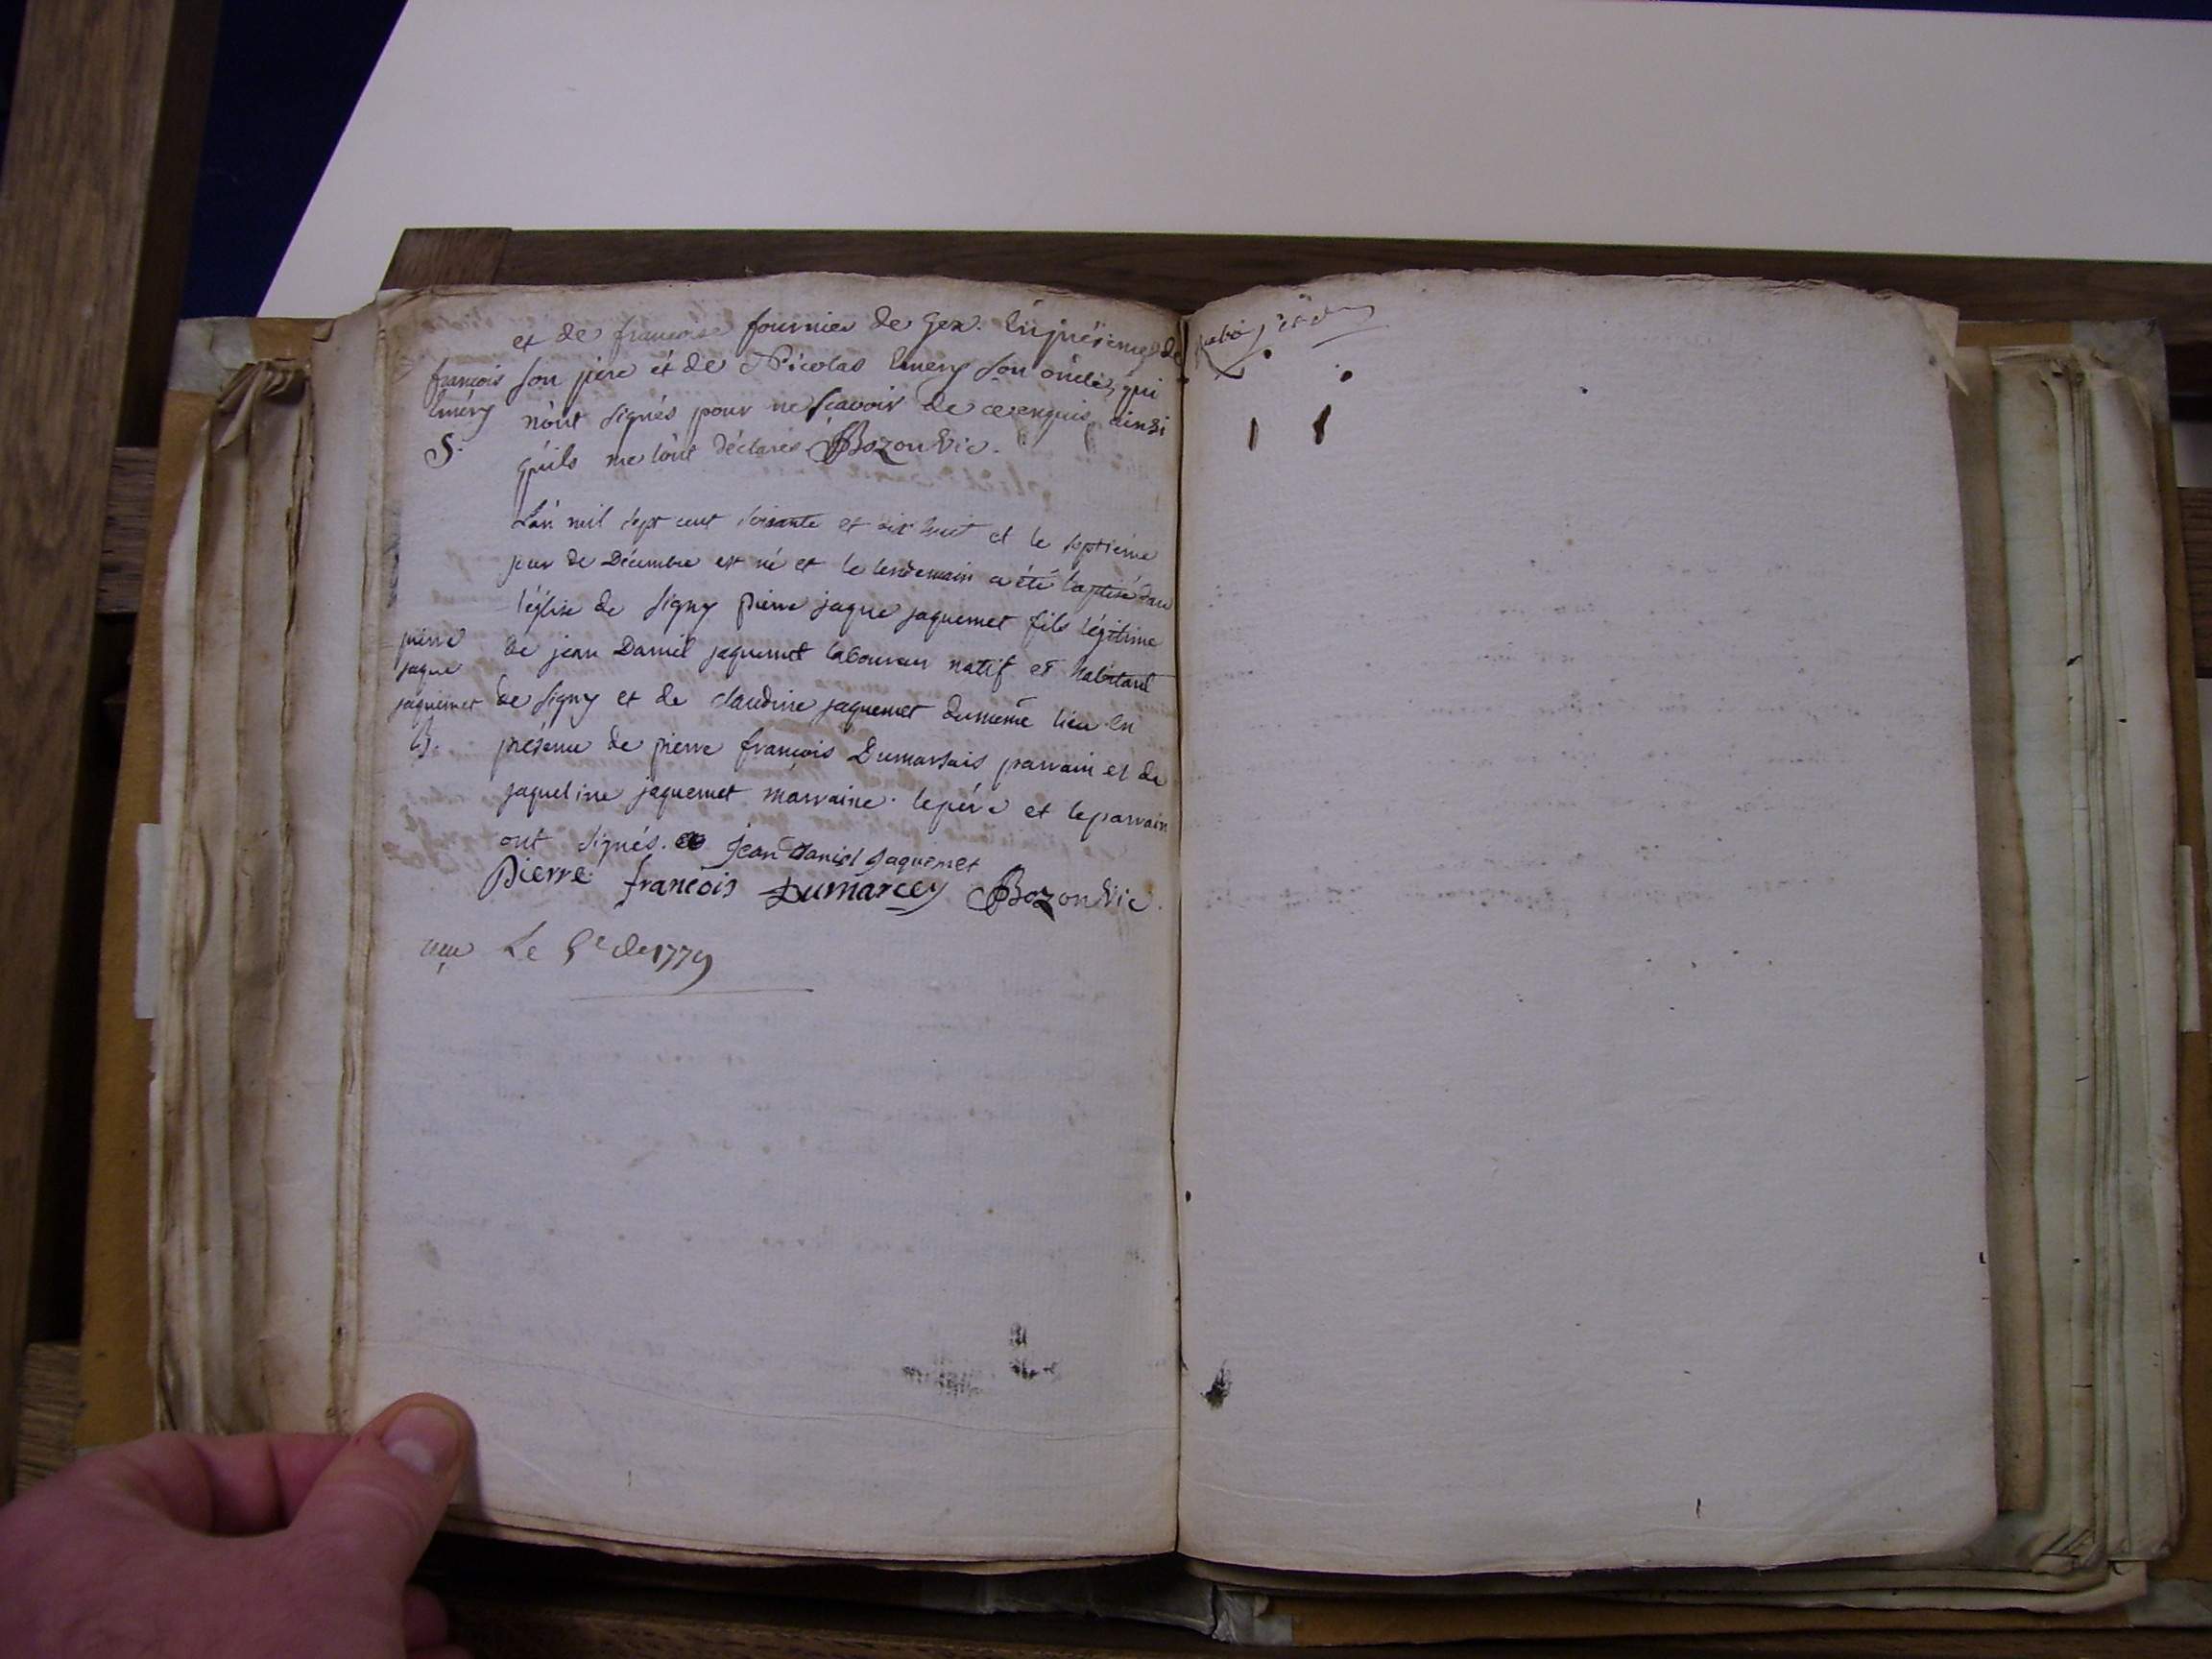 et de francoise fournier de Gex. En présence de
françois son père et de Nicolas Emery son oncle, qui
Emery n'ont signés pour ne scavoir de ce enquis, ainsi
S. qu'ils me l'ont déclarés Bozon Vic.
L'an mil sept cent soixante et dix huit et le septième
jour de Décembre est né et le lendemain a été baptisé dans
l'église de Signy pierre jaque jaquemet fils légitime
pierre de jean Daniel jaquemet laboureur natif et habitant
jaque
jaquemet de Signy et de claudine jaquemet du meme lieu en
B. présence de pierre françois Dumarsais parrain et de
jaqueline jaquemet marraine. le père et le parrain
ont signés. jean Daniel Jaquemet
Pierre françois Dumarcey Bozon Vic.
Le de 1779